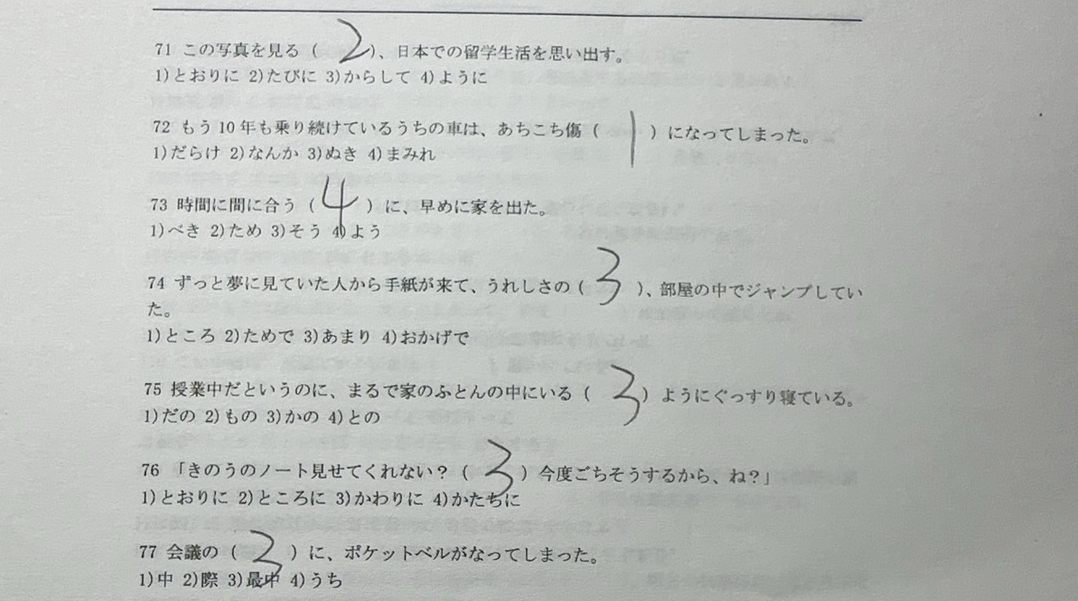 71 この写真を見る（ 2 ）、日本での留学生活を思い出す。
1)とおりに 2)たびに 3)からして 4)ように
72 もう10年も乗り続けているうちの車は、あちこち傷（ 1 ）になってしまった。
1)だらけ 2)なんか 3)ぬき 4)まみれ
73 時間に間に合う（ 4 ）に、早めに家を出た。
1)べき 2)ため 3)そう 4)よう
74 ずっと夢に見ていた人から手紙が来て、うれしさの（ 3 ）、部屋の中でジャンプしてい
た。
1)ところ 2)ためで 3)あまり 4)おかげで
75 授業中だというのに、まるで家のふとんの中にいる（ 3 ）ようにぐっすり寝ている。
1)だの 2)もの 3)かの 4)との
76 「きのうのノート見せてくれない？（ 3 ）今度ごちそうするから、ね？」
1)とおりに 2)ところに 3)かわりに 4)かたちに
77 会議の（ 3 ）に、ポケットベルがなってしまった。
1)中 2)際 3)最中 4)うち